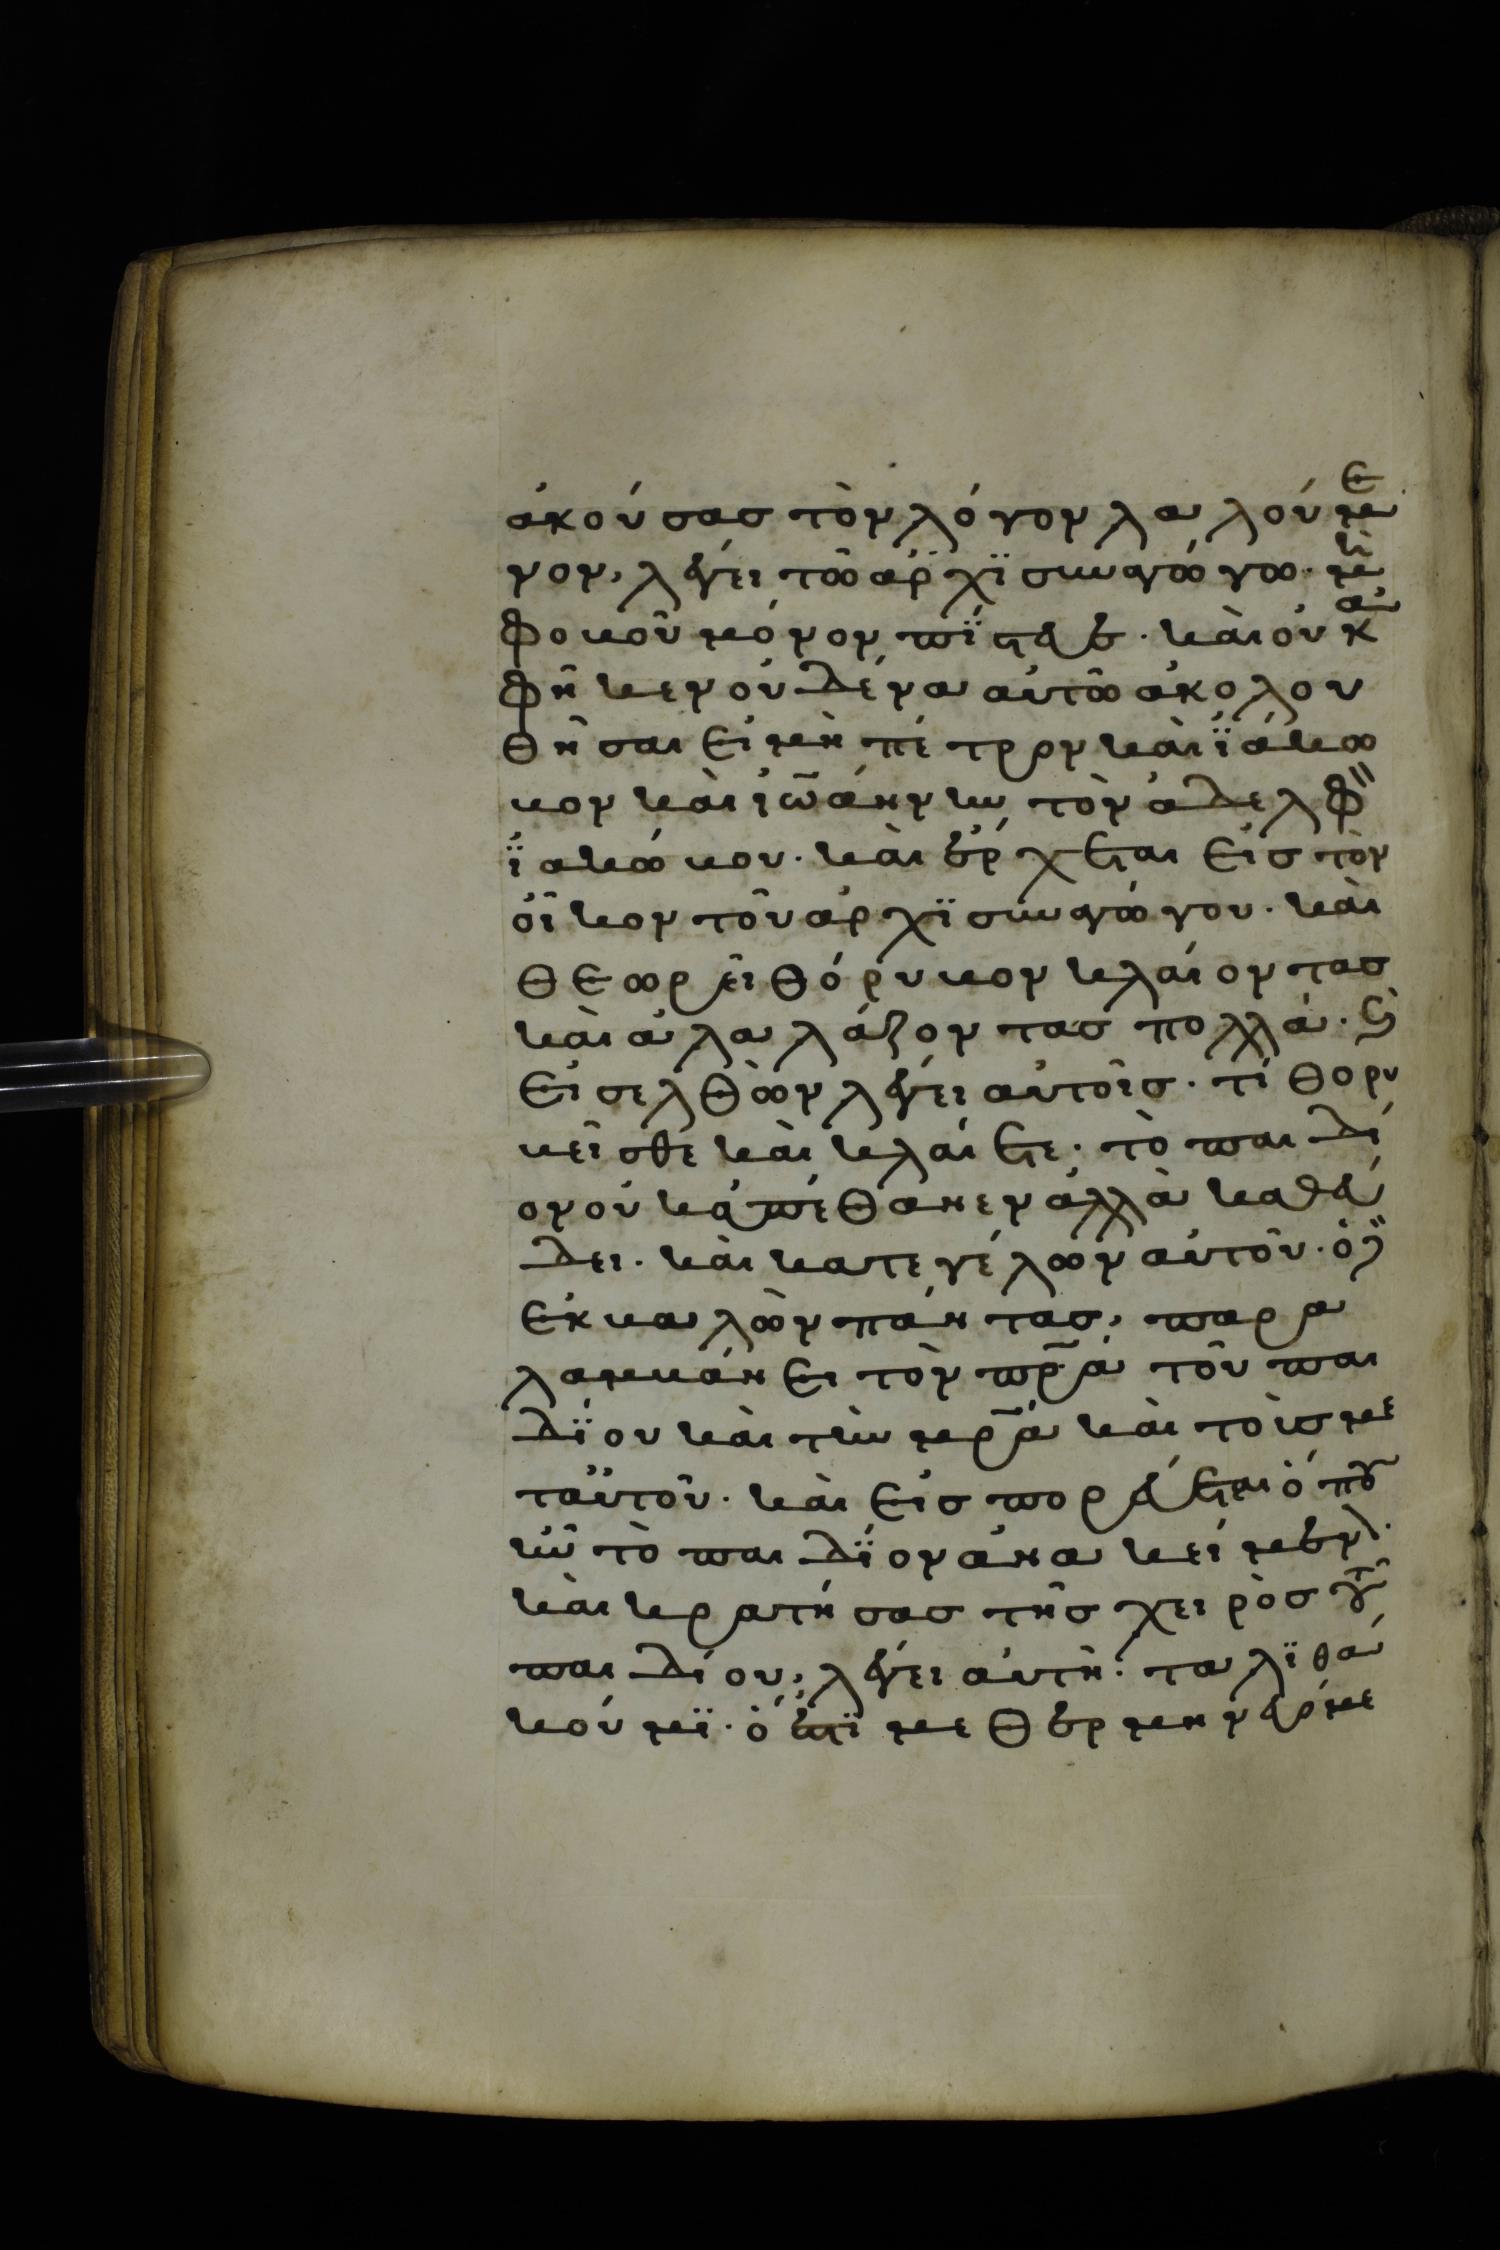 ἀκούσας τὸν λόγον λαλούμε
νον, λέγει τῶ ἀρχϊσυναγώγω· μὴ
φοβοῦ μόνον πίστευε· καὶ οὐκ ἀ
φῆκεν οὐδένα αὐτῶ ἀκολου
θῆσαι εἰ μὴ πέτρον καὶ ϊάκω
βον καὶ ϊωάννην τὸν ἀδελφὸν
ϊακώβου· καὶ ἔρχεται εἰς τὸν
οἶκον τοῦ ἀρχϊσυναγώγου· καὶ
θεωρεῖ θόρυβον κλαίοντας
καὶ ἀλαλάζοντας πολλά· καὶ
εἰσελθὼν λέγει αὐτοῖς· τί θορυ
βεῖσθε καὶ κλαίετε· τὸ παιδί
ον οὐκ ἀπέθανεν ἀλλὰ καθεύ
δει· καὶ κατεγέλων αὐτοῦ· ὁ δὲ
ἐκβαλὼν πάντας, παρα
λαμβάνει τὸν πρ̅α τοῦ παι
δϊου καὶ τὴν μρ̅α καὶ τοὺς με
τ αὐτοῦ· καὶ εἰσπορεύεται ὅπου
ἦν τὸ παιδϊον ἀνακείμενον·
καὶ κρατήσας τῆς χειρὸς τοῦ
παιδίου, λέγει αὐτῆ· ταλϊθά
κούμϊ· ὅ ἐστϊ μεθερμηνευόμε